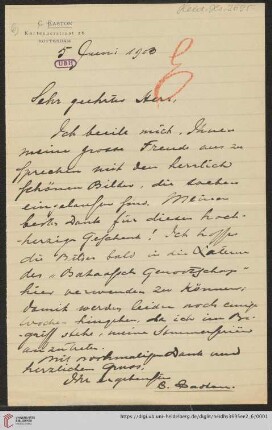 C. EASTON
ROTTERDAM
5 Juni 1908
Sehr geehrter Herr,
Ich beeile mich, Ihnen
meine grosse Freude aus zu
sprechen mit den herrlich
schönen Bilder, die soeben
eingelaufen sind. Meinen
besten Dank für dieses hoch-
herzige Geschenk! Ich hoffe
die Bilder bald in die
des „Bataafsch Genootschap"
hier verwenden zu können;
damit werden leider noch einige
Wochen hingehen da ich im Be-
griff stehe, meine Sommerferien
an zu treten.
Mit nochmaligem Dank und
herzlichem Gruss,
Ihr ergebener
C. Easton.